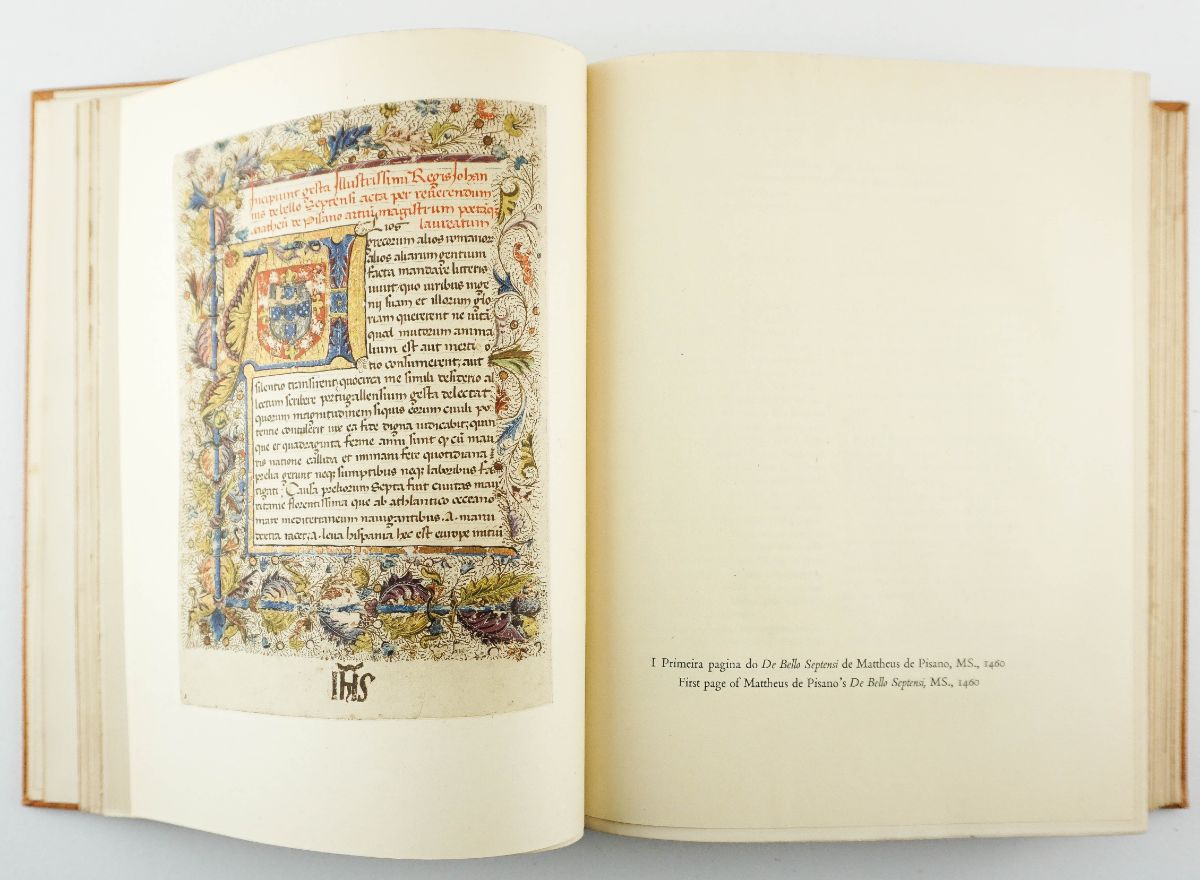 Incipiunt gesta Illustrissimi Regis Johan
nis de bello Septensi acta per reuerendum
Matheũ de Pisano artiũ magistrum poetãqȝ
laureatum
Alios
grecorum alios romanor
alios aliarum gentium
facta mandare litteris
iuuit quo uiribus inge
nij suam et illorum glo
riam quererent ne uitã
quod mutorum anima
lium est aut inertı o
tio consumerent, aut
silentio transirent, quocirca me simili desiderio al
lectum scribere portugallensium gesta delectat
quorum magnitudinem siquis eorum ciuili po
tentie contulerit me ea fide digna iudicabit, quin
que et quadraginta ferme anni sunt qȝ cũ mau
ris natione callida et immani fere quotidiana
prelia gerunt neqȝ sumptibus neqȝ laboribus fa
tigati. Causa preliorum Septa fuit ciuitas mau
ritanie florentissima que ab athlantico occeano
mare mediterraneum nauigantibus. A. manu
dextra iacet, a. leua hispania hec est europe initiũ
IHS
I Primeira pagina do De Bello Septensi de Mattheus de Pisano, MS., 1460
First page of Mattheus de Pisano's De Bello Septensi, MS., 1460